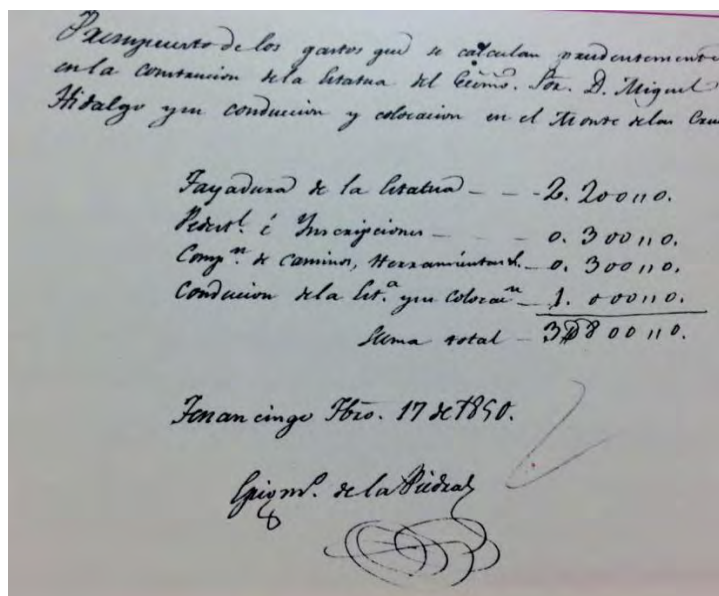 Presupuesto de los gastos que se calculan prudentemente
en la construcion de la Estatua del Ecsmo. Sor. D. Miguel
Hidalgo y su conduccion y colocacion en el Monte de las Cru
Tayadura de la Estatua - - - 2. 200 ,, 0.
Pedestl. é Inscripciones - - - 0. 300 ,, 0.
Compn. de caminos, Herramientas &. - 0. 300 ,, 0.
Conducion de la Est.a y su colocacn - 1. 000 ,, 0.
Suma total - 3,,800 ,, 0.
Tenancingo Fbro. 17 de 1850.
Epigmo. de la Piedra